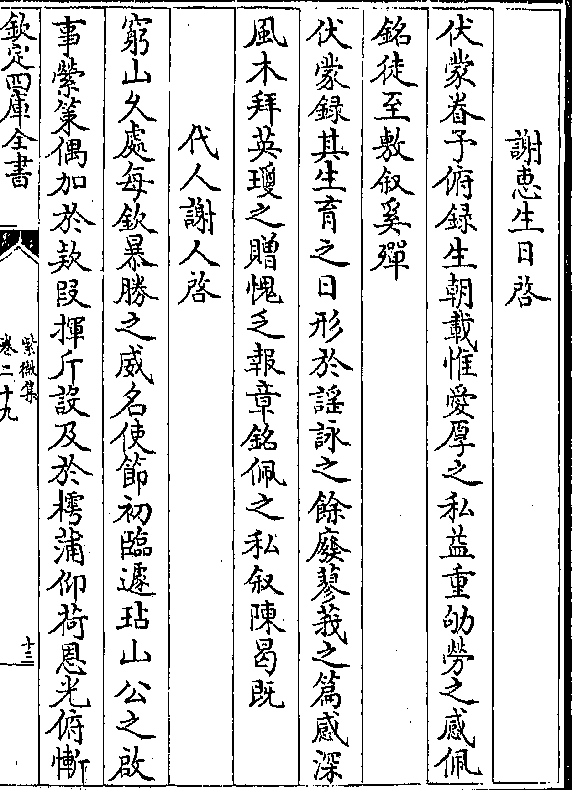 謝惠生日啓
伏蒙眷予俯錄生朝載惟愛厚之私益重劬勞之感佩
銘徒至敷叙奚殫
伏蒙錄其生育之日形於謡詠之餘廢蓼莪之篇感深
風木拜英瓊之贈愧乏報章銘佩之私叙陳曷既
代人謝人啓
窮山久處每欽暴勝之威名使節初臨遽玷山公之啟
事縈策偶加於欵段揮斤設及於樗蒲仰荷恩光俯慚
欽定四庫全書
紫微集
卷二十九
十三